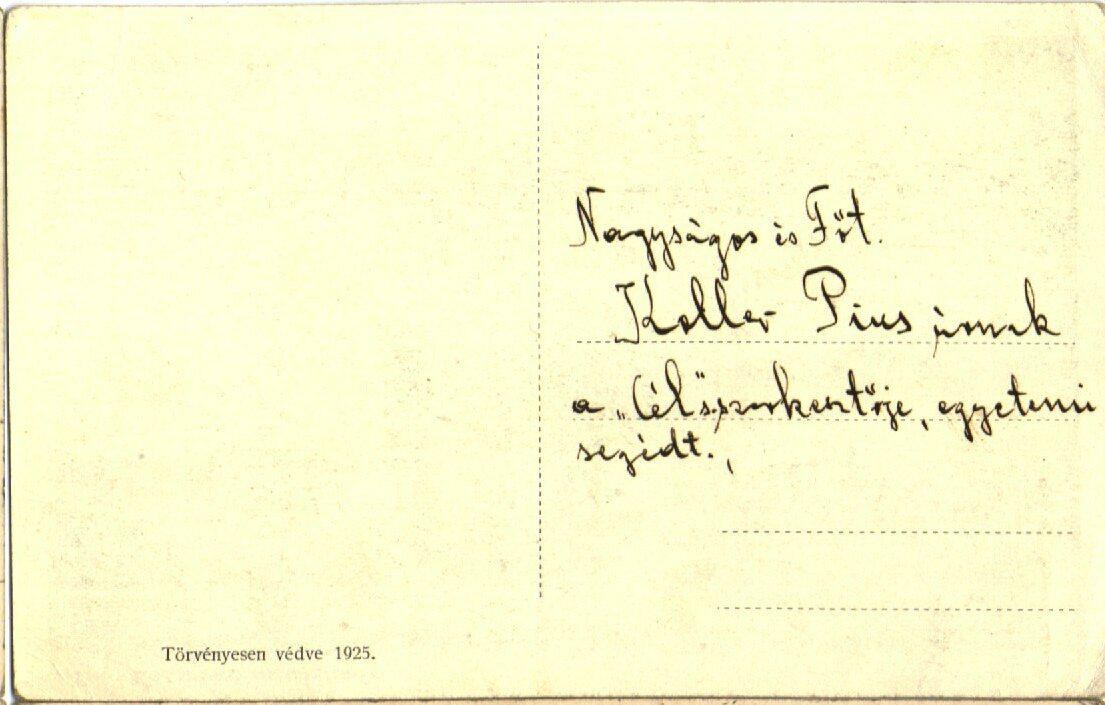 Nagyságos és Főt.
Koller Pius úrnak
a „Cél" szerkesztője, egyetemi
segédt.,
Törvényesen védve 1925.